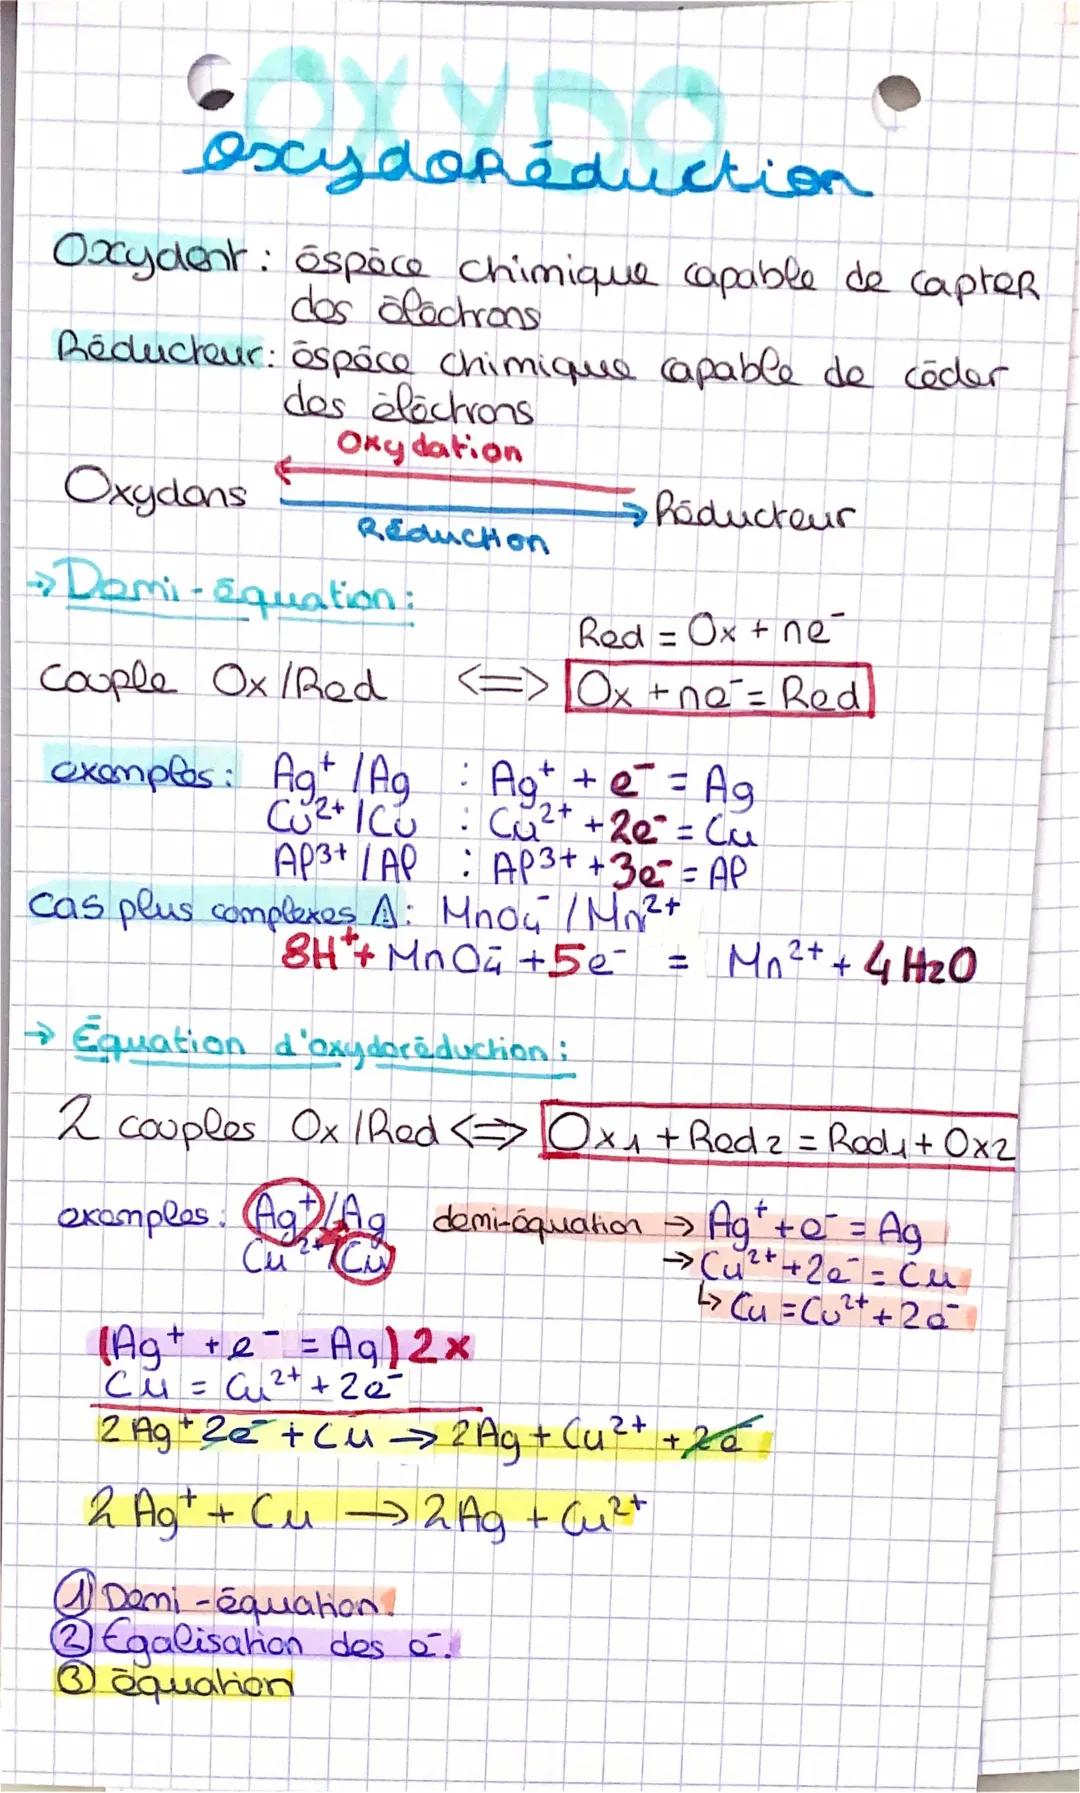 OXYDO
oxydoréduction
Oxydant : éspèce chimique capable de capter
des électrons
Réducteur : éspèce chimique capable de céder
des éléctrons
Oxydation
Oxydans
Réducteur
Réduction
→ Demi-équation :
Red = Ox + ne⁻
couple Ox/Red <=> Ox + ne⁻ = Red
exemples : Ag⁺/Ag : Ag⁺ + e⁻ = Ag
Cu²⁺/Cu : Cu²⁺ + 2e⁻ = Cu
Al³⁺/Al : Al³⁺ + 3e⁻ = Al
cas plus complexes ⚠ : MnO₄⁻/Mn²⁺
8H⁺ + MnO₄⁻ + 5e⁻ = Mn²⁺ + 4H₂O
→ Équation d'oxydoréduction :
2 couples Ox/Red <=> Ox₁ + Red₂ = Red₁ + Ox₂
exemples : Ag⁺/Ag demi-équation → Ag⁺ + e⁻ = Ag
Cu²⁺/Cu → Cu²⁺ + 2e⁻ = Cu
↳ Cu = Cu²⁺ + 2e⁻
(Ag⁺ + e⁻ = Ag) 2x
Cu = Cu²⁺ + 2e⁻
2Ag⁺ 2e⁻ + Cu → 2Ag + Cu²⁺ + 2e⁻
2Ag⁺ + Cu → 2Ag + Cu²⁺
① Demi-équation.
② Égalisation des e⁻.
③ équation